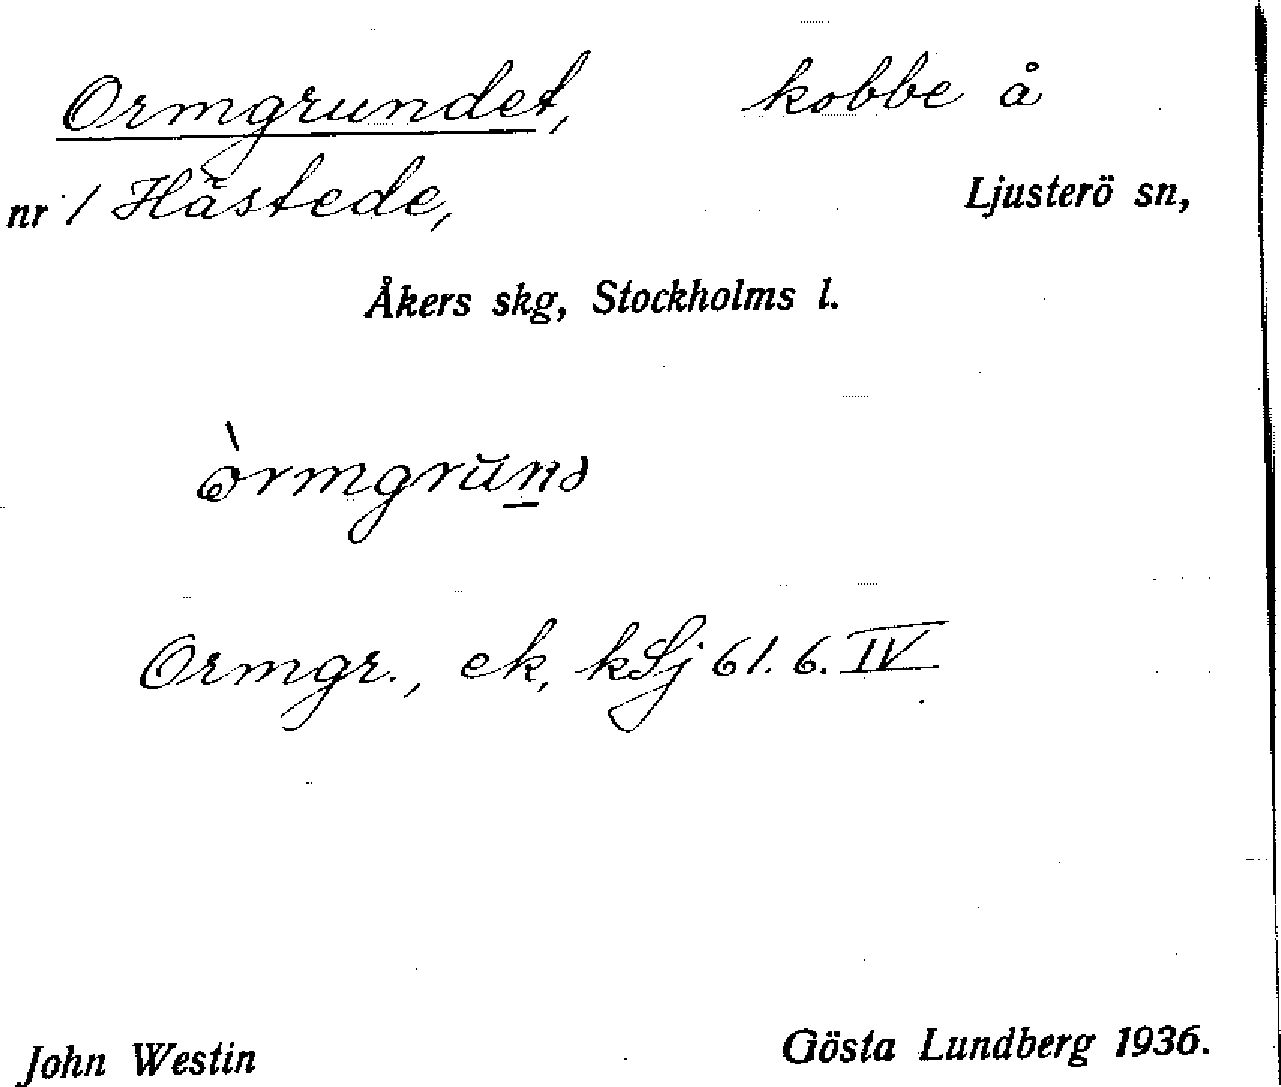 Ormgrundet, kobbe å
nr 1 Hästede, Ljusterö sn,
Åkers skg, Stockholms l.
òrmgrŭns
Ormgr., ek, kLj 61. 6. IV
John Westin Gösta Lundberg 1936.